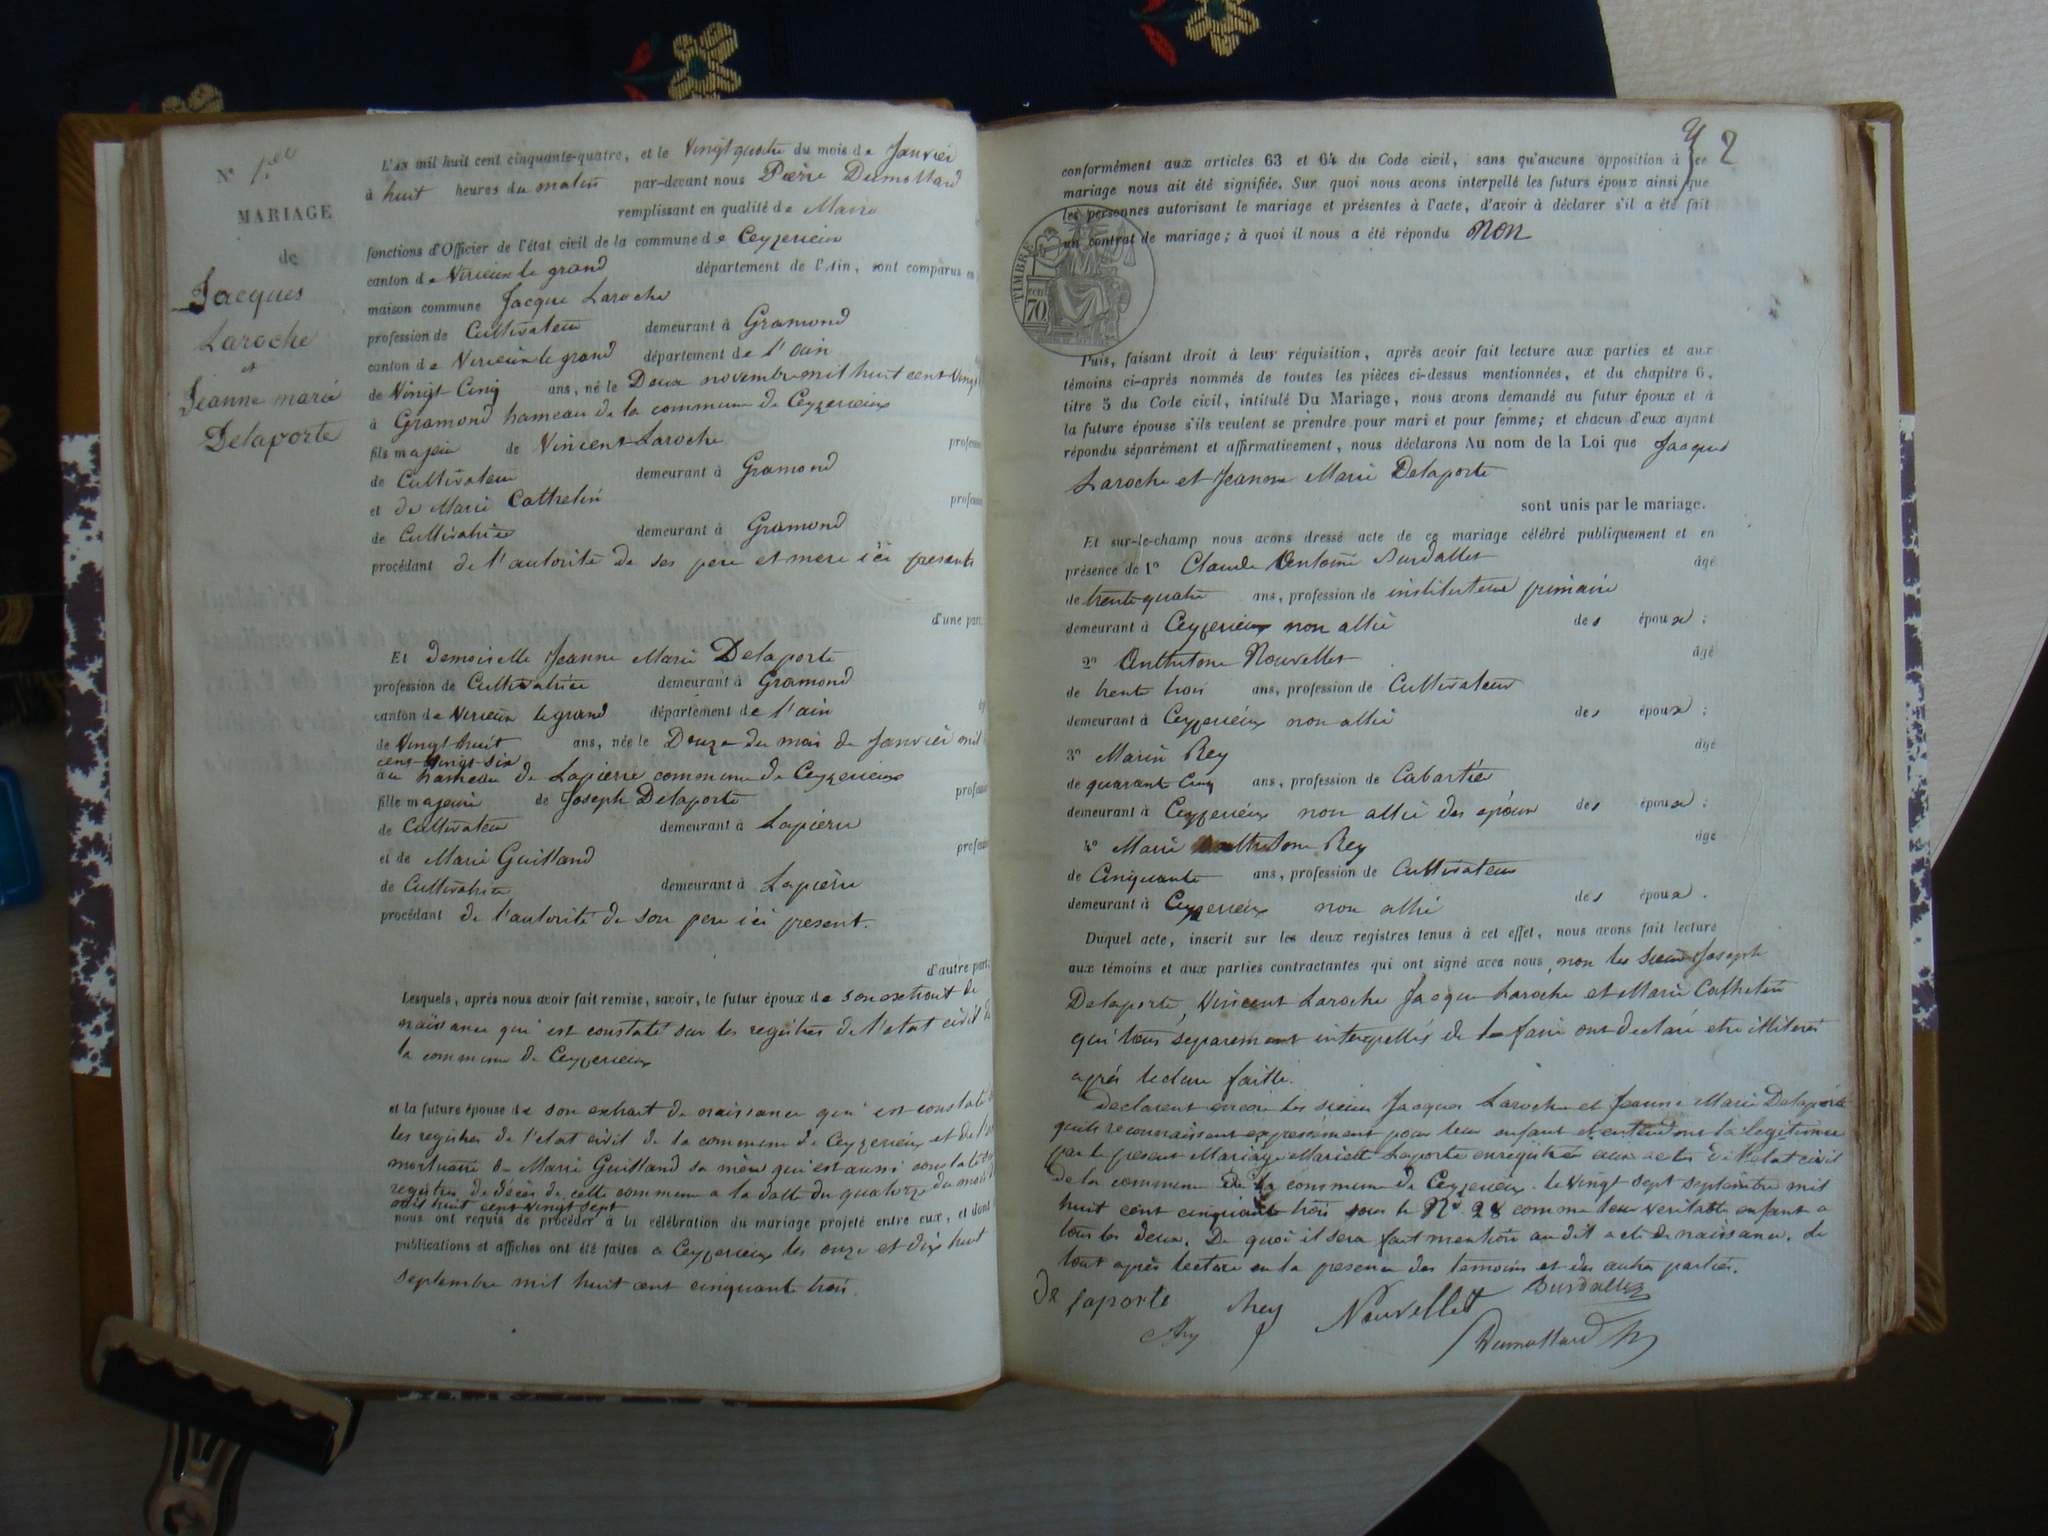 N° 1er
MARIAGE
de
Jacques
Laroche
et
Jeanne marie
Delaporte
L'AN mil huit cent cinquante-quatre, et le Vingt quatre du mois de Janvier
à huit heures du matin par-devant nous Pierre Dumollard
remplissant en qualité de Maire
fonctions d'Officier de l'état civil de la commune de Ceyzerieux
canton de Virieux le grand département de l'Ain, sont comparus en
maison commune Jacque Laroche
profession de Cultivateur demeurant à Gramond
canton de Virieux le grand département de l'ain
de Vingt Cinq ans, né le Deux novembre mil huit cent vingt
à Gramond hameau de la commune de Ceyzerieux
fils majeur de Vincent Laroche profession
de Cultivateur demeurant à Gramond
et de Marie Cathelin profession
de Cultivatrice demeurant à Gramond
procédant de l'autorité de ses pere et mere ici presents
d'une part.
Et demoiselle Jeanne Marie Delaporte
profession de Cultivatrice demeurant à Gramond
canton de Virieux le grand département de l'ain
de Vingt huit ans, née le Douze du mois de Janvier mil
cent vingt six
au hameau de Lapierre commune de Ceyzerieux
fille majeure de Joseph Delaporte profession
de Cultivateur demeurant à Lapierre
et de Marie Guilland profession
de Cultivatrice demeurant à Lapierre
procédant de l'autorité de son pere ici present.
d'autre part.
Lesquels, après nous avoir fait remise, savoir, le futur époux de son extrait de
naissance qui est constaté sur les registres de l'etat civil de
la commune de Ceyzerieux
et la future épouse de son extrait de naissance qui est constaté
les registres de l'etat civil de la commune de Ceyzerieux et de l'
mortuaire de Marie Guilland sa mère qui est aussi constaté
registres de décès de cette commune a la datte du quatorze du mois
mil huit cent vingt sept
nous ont requis de procéder à la célébration du mariage projeté entre eux, et dont
publications et affiches ont été faites a Ceyzerieux les onze et dix huit
septembre mil huit cent cinquante trois.
2
conformément aux articles 63 et 64 du Code civil, sans qu'aucune opposition à ce
mariage nous ait été signifiée. Sur quoi nous avons interpellé les futurs époux ainsi que
les personnes autorisant le mariage et présentes à l'acte, d'avoir à déclarer s'il a été fait
un contrat de mariage; à quoi il nous a été répondu Non
TIMBRE
70
Puis, faisant droit à leur réquisition, après avoir fait lecture aux parties et aux
témoins ci-après nommés de toutes les pièces ci-dessus mentionnées, et du chapitre 6,
titre 5 du Code civil, intitulé Du Mariage, nous avons demandé au futur époux et à
la future épouse s'ils veulent se prendre pour mari et pour femme; et chacun d'eux ayant
répondu séparément et affirmativement, nous déclarons Au nom de la Loi que Jacques
Laroche et Jeanne Marie Delaporte
sont unis par le mariage.
Et sur-le-champ nous avons dressé acte de ce mariage célébré publiquement et en
présence de 1° Claude Antoine Burdallet âgé
de trente quatre ans, profession de instituteur primaire
demeurant à Ceyzerieux non allié des époux;
2° Anthelme Nouvellet âgé
de trente trois ans, profession de Cultivateur
demeurant à Ceyzerieux non allié des époux;
3° Marin Rey âgé
de quarante Cinq ans, profession de Cabartié
demeurant à Ceyzerieux non allié des époux des époux;
4° Marie Anthelme Rey âgé
de Cinquante ans, profession de Cultivateur
demeurant à Ceyzerieux non allié des époux.
Duquel acte, inscrit sur les deux registres tenus à cet effet, nous avons fait lecture
aux témoins et aux parties contractantes qui ont signé avec nous, non les sieurs Joseph
Delaporte, Vincent Laroche Jacque Laroche et Marie Cathelin
qui tous separement interpellés de le faire ont declaré etre illiteré
après lecture faitte.
Declarent encore les sieurs Jacques Laroche et Jeanne Marie Delaporte
quils reconnaissent expressement pour leur enfant et entendent la legitimer
par le present Mariage Mariette Laporte enregistré aux actes de l'etat civil
de la commune De la commune de Ceyzerieux. le vingt sept septembre mil
huit cent cinquante trois sous le N° 28 comme leur veritable enfant a
tous les deux. De quoi il sera fait mention au dit acte de naissance. le
tout après lecture en la presence des temoins et des autres parties.
De laporte Rey Nouvellet Burdallet
Rey Dumollard